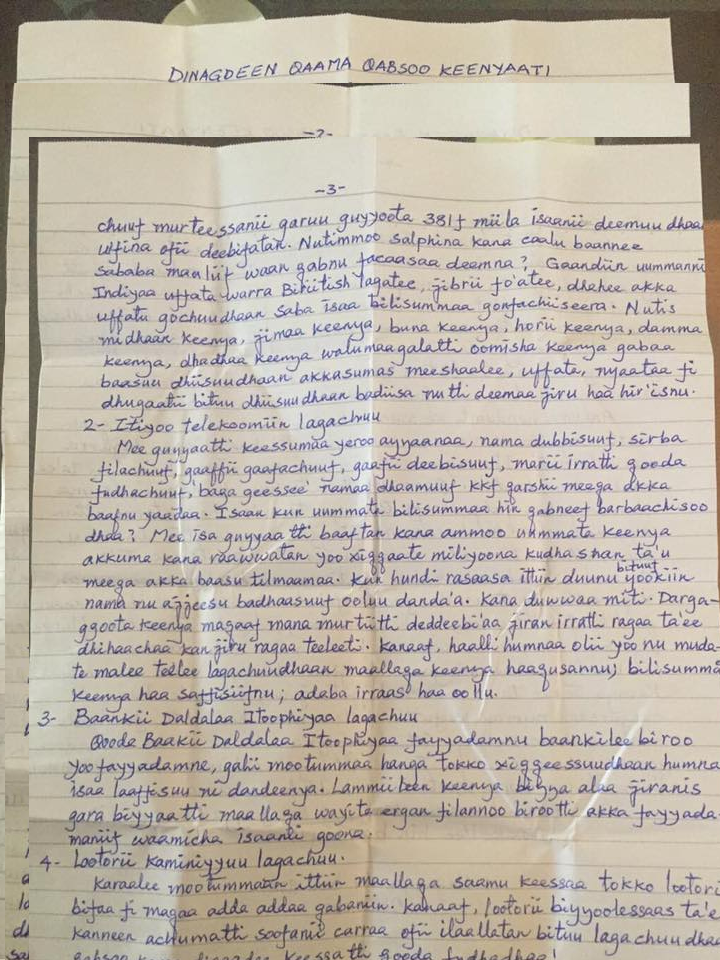 DINAGDEEN QAAMA QABSOO KEENYAATI
-2-
-3-
chuuf murteessanii garuu guyyoota 381f miila isaanii deemuudhaan
uffina ofii deebifatan. Nutimmoo salphina kana caalu baannee
sababa maaliif waan gabnu facaasaa deemna? Gaandiin uummanni
Indiyaa uffata warra Biritish lagatee, jibrii fo'atee, dhahee akka
uffatu gochuudhaan saba isaa bilisummaa gonfachiiseera. Nutis
midhaan keenya, jimaa keenya, buna keenya, horii keenya, damma
keenya, dhadhaa keenya walumaagalatti oomisha keenya gabaa
baasuu dhiisuudhaan akkasumas meeshaalee, uffata, nyaataa fi
dhugaatii bituu dhiisuudhaan badiisa nutti deemaa jiru haa hir'isnu.
2- Itiyoo telekoomiin lagachuu
Mee guyyaatti keessumaa yeroo ayyaanaa, nama dubbisuuf, sirba
filachuuf, gaaffii gaafachuuf, gaafii deebisuuf, marii irratti qooda
fudhachuuf, 'baga geesse' namaa dhaamuuf kkf qarshii meeqa akka
baafnu yaadaa. Isaan kun uummata bilisummaa hin qabneef barbaachisoo
dhaa? Mee isa guyyaatti baaftan kana ammoo uummata keenya
akkuma kana raawwatan yoo xiqqaate miliyoona kudha shan ta'u
meeqa akka baasu tilmaamaa. Kun hundi rasaasa ittiin duunu bituuf yookiin
nama nu ajjeesu badhaasuuf ooluu danda'a. Kana duwwaa miti. Darga-
ggoota keenya maqaaf mana murtiitti deddeebi'aa jiran irratti ragaa ta'ee
dhihaachaa kan jiru ragaa teeleeti. Kanaaf, haalli humnaa olii yoo nu muda-
te malee teelee lagachuudhaan maallaqa keenya haaqusannu; bilisummaa
keenya haa saffisiifnu; adaba irraas haa oollu.
3- Baankii Daldalaa Itoophiyaa lagachuu
Qooda Baakii Daldalaa Itoophiyaa fayyadamnu baankilee biroo
yoo fayyadamne, galii mootummaa hanga tokko xiqqeessuudhaan humna
isaa laaffisuu ni dandeenya. Lammiileen keenya biyya alaa jiranis
gara biyyaatti maallaqa wayita ergan filannoo birootti akka fayyada-
maniif waamicha isaanii goona.
4- Lootorii Kaminiyyuu lagachuu.
Karaalee mootummaan ittiin maallaqa saamu keessaa tokko lootorii
bifaa fi maqaa adda addaa qabaniin. Kanaaf, lootorii biyyoolessaas ta'e
kanneen achumatti soofanii carraa ofii ilaallatan bituu lagachuudhaan